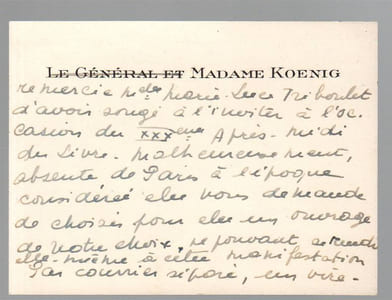 LE GÉNÉRAL ET MADAME KOENIG
remercie Mdme Marie-Luce Triboulet
d'avoir songé à l'inviter à l'oc-
casion du XXXème Après-Midi
du Livre. Malheureusement,
absente de Paris à l'époque
considérée elle vous demande
de choisir pour elle un ouvrage
de votre choix, ne pouvant se rendre
elle-même à cette manifestation
Par courrier séparé, un vire-